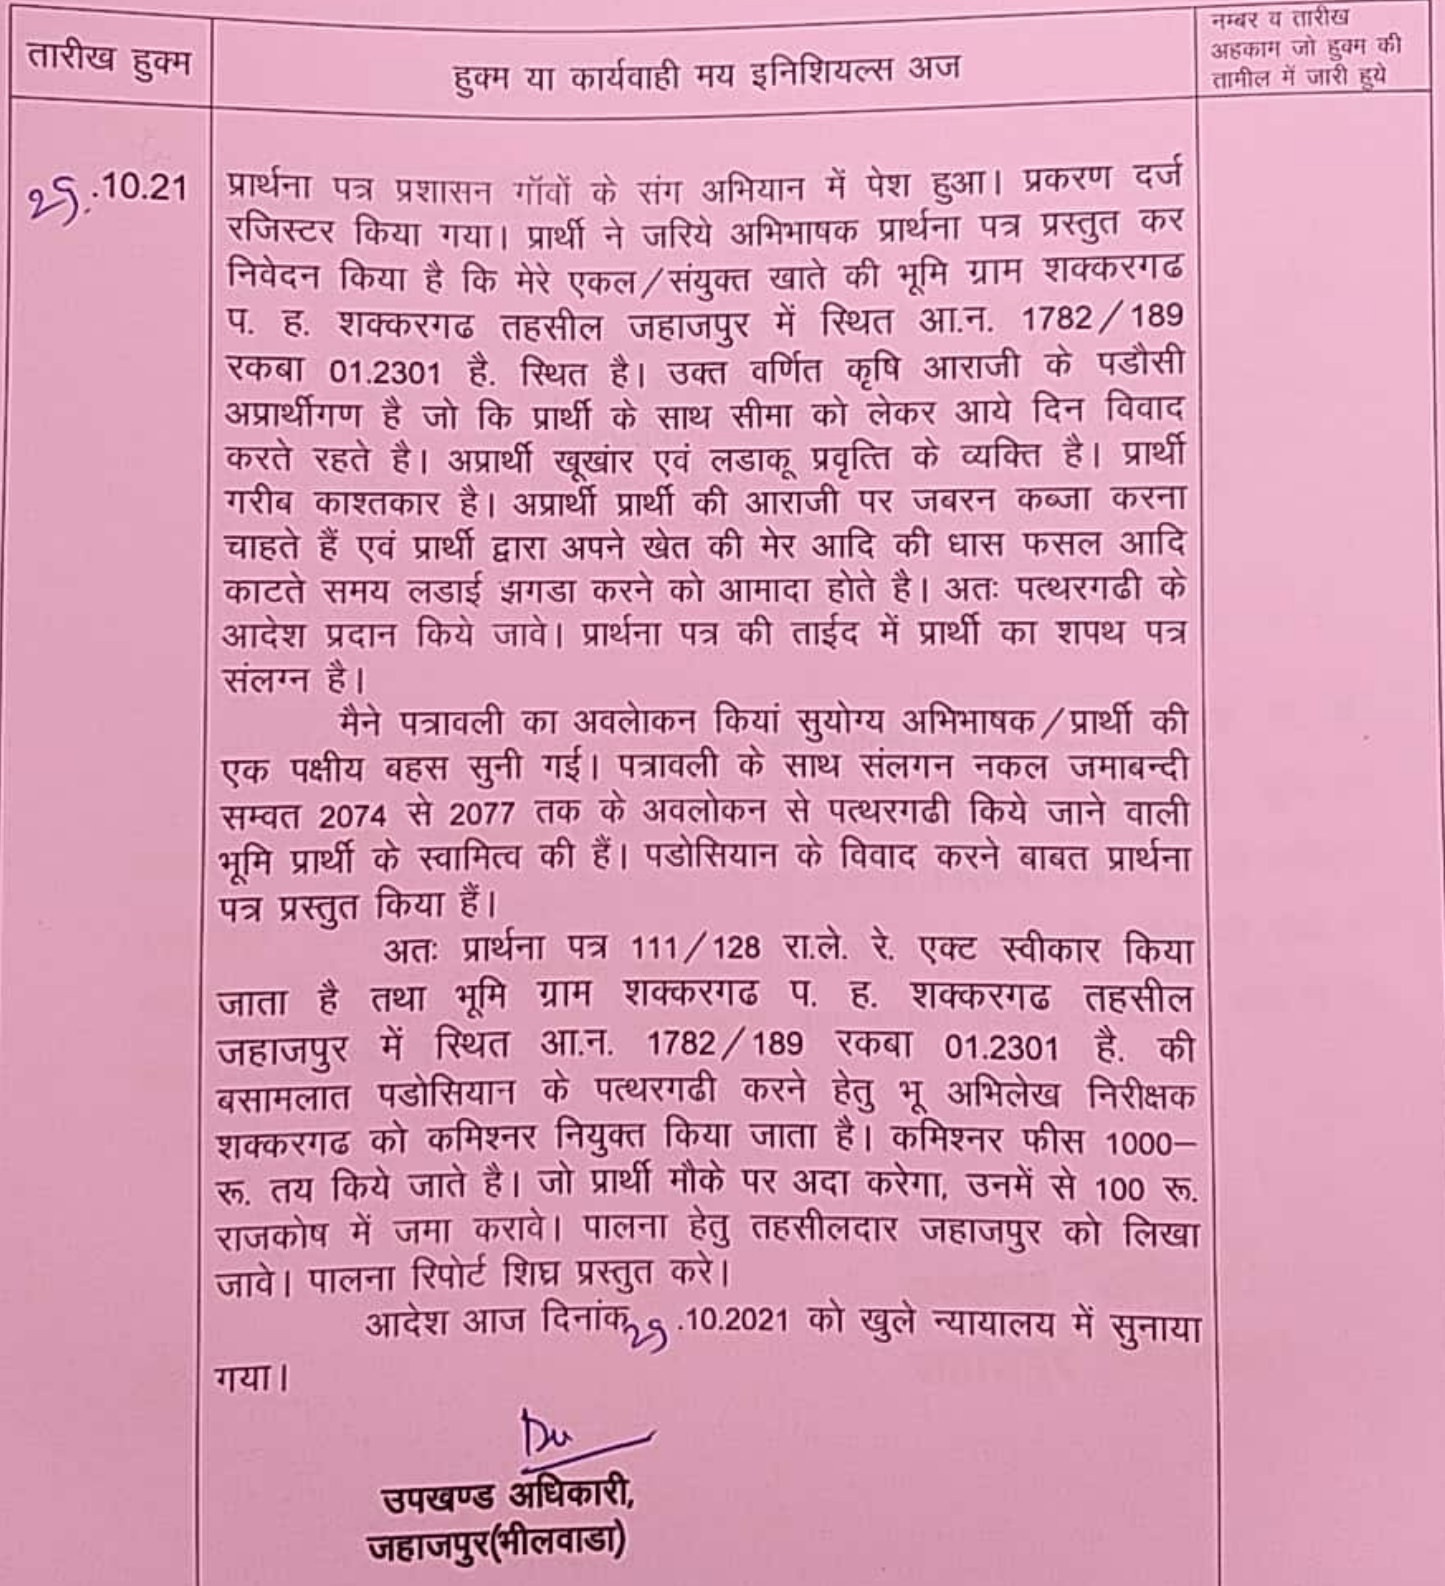 तारीख हुक्म
हुक्म या कार्यवाही मय इनिशियल्स अज
नम्बर व तारीख
अहकाम जो हुक्म की
तामील में जारी हुये
.10.21
प्रार्थना पत्र प्रशासन गॉवों के संग अभियान में पेश हुआ। प्रकरण दर्ज
रजिस्टर किया गया। प्रार्थी ने जरिये अभिभाषक प्रार्थना पत्र प्रस्तुत कर
निवेदन किया है कि मेरे एकल/संयुक्त खाते की भूमि ग्राम शक्करगढ
प. ह. शक्करगढ तहसील जहाजपुर में स्थित आ.न. 1782/189
रकबा 01.2301 है. स्थित है। उक्त वर्णित कृषि आराजी के पडौसी
अप्रार्थीगण है जो कि प्रार्थी के साथ सीमा को लेकर आये दिन विवाद
करते रहते है। अप्रार्थी खूखांर एवं लडाकू प्रवृत्ति के व्यक्ति है। प्रार्थी
गरीब काश्तकार है। अप्रार्थी प्रार्थी की आराजी पर जबरन कब्जा करना
चाहते हैं एवं प्रार्थी द्वारा अपने खेत की मेर आदि की धास फसल आदि
काटते समय लडाई झगडा करने को आमादा होते है। अतः पत्थरगढी के
आदेश प्रदान किये जावे। प्रार्थना पत्र की ताईद में प्रार्थी का शपथ पत्र
संलग्न है।
मैने पत्रावली का अवलोकन कियां सुयोग्य अभिभाषक/प्रार्थी की
एक पक्षीय बहस सुनी गई। पत्रावली के साथ संलगन नकल जमाबन्दी
सम्वत 2074 से 2077 तक के अवलोकन से पत्थरगढी किये जाने वाली
भूमि प्रार्थी के स्वामित्व की हैं। पडोसियान के विवाद करने बाबत प्रार्थना
पत्र प्रस्तुत किया हैं।
अतः प्रार्थना पत्र 111/128 रा.ले. रे. एक्ट स्वीकार किया
जाता है तथा भूमि ग्राम शक्करगढ प. ह. शक्करगढ तहसील
जहाजपुर में स्थित आ.न. 1782/189 रकबा 01.2301 है. की
बसामलात पडोसियान के पत्थरगढी करने हेतु भू अभिलेख निरीक्षक
शक्करगढ को कमिश्नर नियुक्त किया जाता है। कमिश्नर फीस 1000–
रू. तय किये जाते है। जो प्रार्थी मौके पर अदा करेगा, उनमें से 100 रू.
राजकोष में जमा करावे। पालना हेतु तहसीलदार जहाजपुर को लिखा
जावे। पालना रिपोर्ट शिघ्र प्रस्तुत करे।
आदेश आज दिनांक .10.2021 को खुले न्यायालय में सुनाया
गया।
उपखण्ड अधिकारी,
जहाजपुर(भीलवाडा)